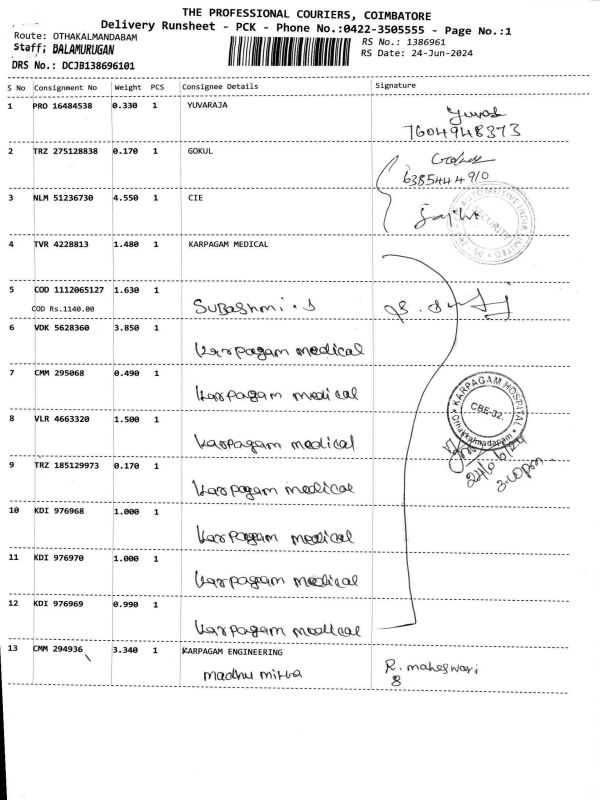 THE PROFESSIONAL COURIERS, COIMBATORE
Delivery Runsheet - PCK - Phone No.:0422-3505555 - Page No.:1
Route: OTHAKALMANDABAM
RS No.: 1386961
Staff; BALAMURUGAN
RS Date: 24-Jun-2024
DRS No.: DCJB138696101
S No Consignment No Weight PCS Consignee Details Signature
1 PRO 16484538 0.330 1 YUVARAJA
7604948373
2 TRZ 275128838 0.170 1 GOKUL
6385444910
3 NLM 51236730 4.550 1 CIE
AUTOMOTIVE INDIA LIMITED
SECURITY
4 TVR 4228813 1.480 1 KARPAGAM MEDICAL
5 COD 1112065127 1.630 1
COD Rs.1140.00
Subashmi.S
6 VDK 5628360 3.850 1
Karpagam medical
7 CMM 295068 0.490 1
Karpagam medical
KARPAGAM HOSPITAL
CBE-32.
Othakkalmadapam
8 VLR 4663320 1.500 1
Karpagam medical
24/6/24
3.00pm
9 TRZ 185129973 0.170 1
Karpagam medical
10 KDI 976968 1.000 1
Karpagam medical
11 KDI 976970 1.000 1
Karpagam medical
12 KDI 976969 0.990 1
Karpagam medical
13 CMM 294936 3.340 1 KARPAGAM ENGINEERING
madhu mitra
R. maheswari
8